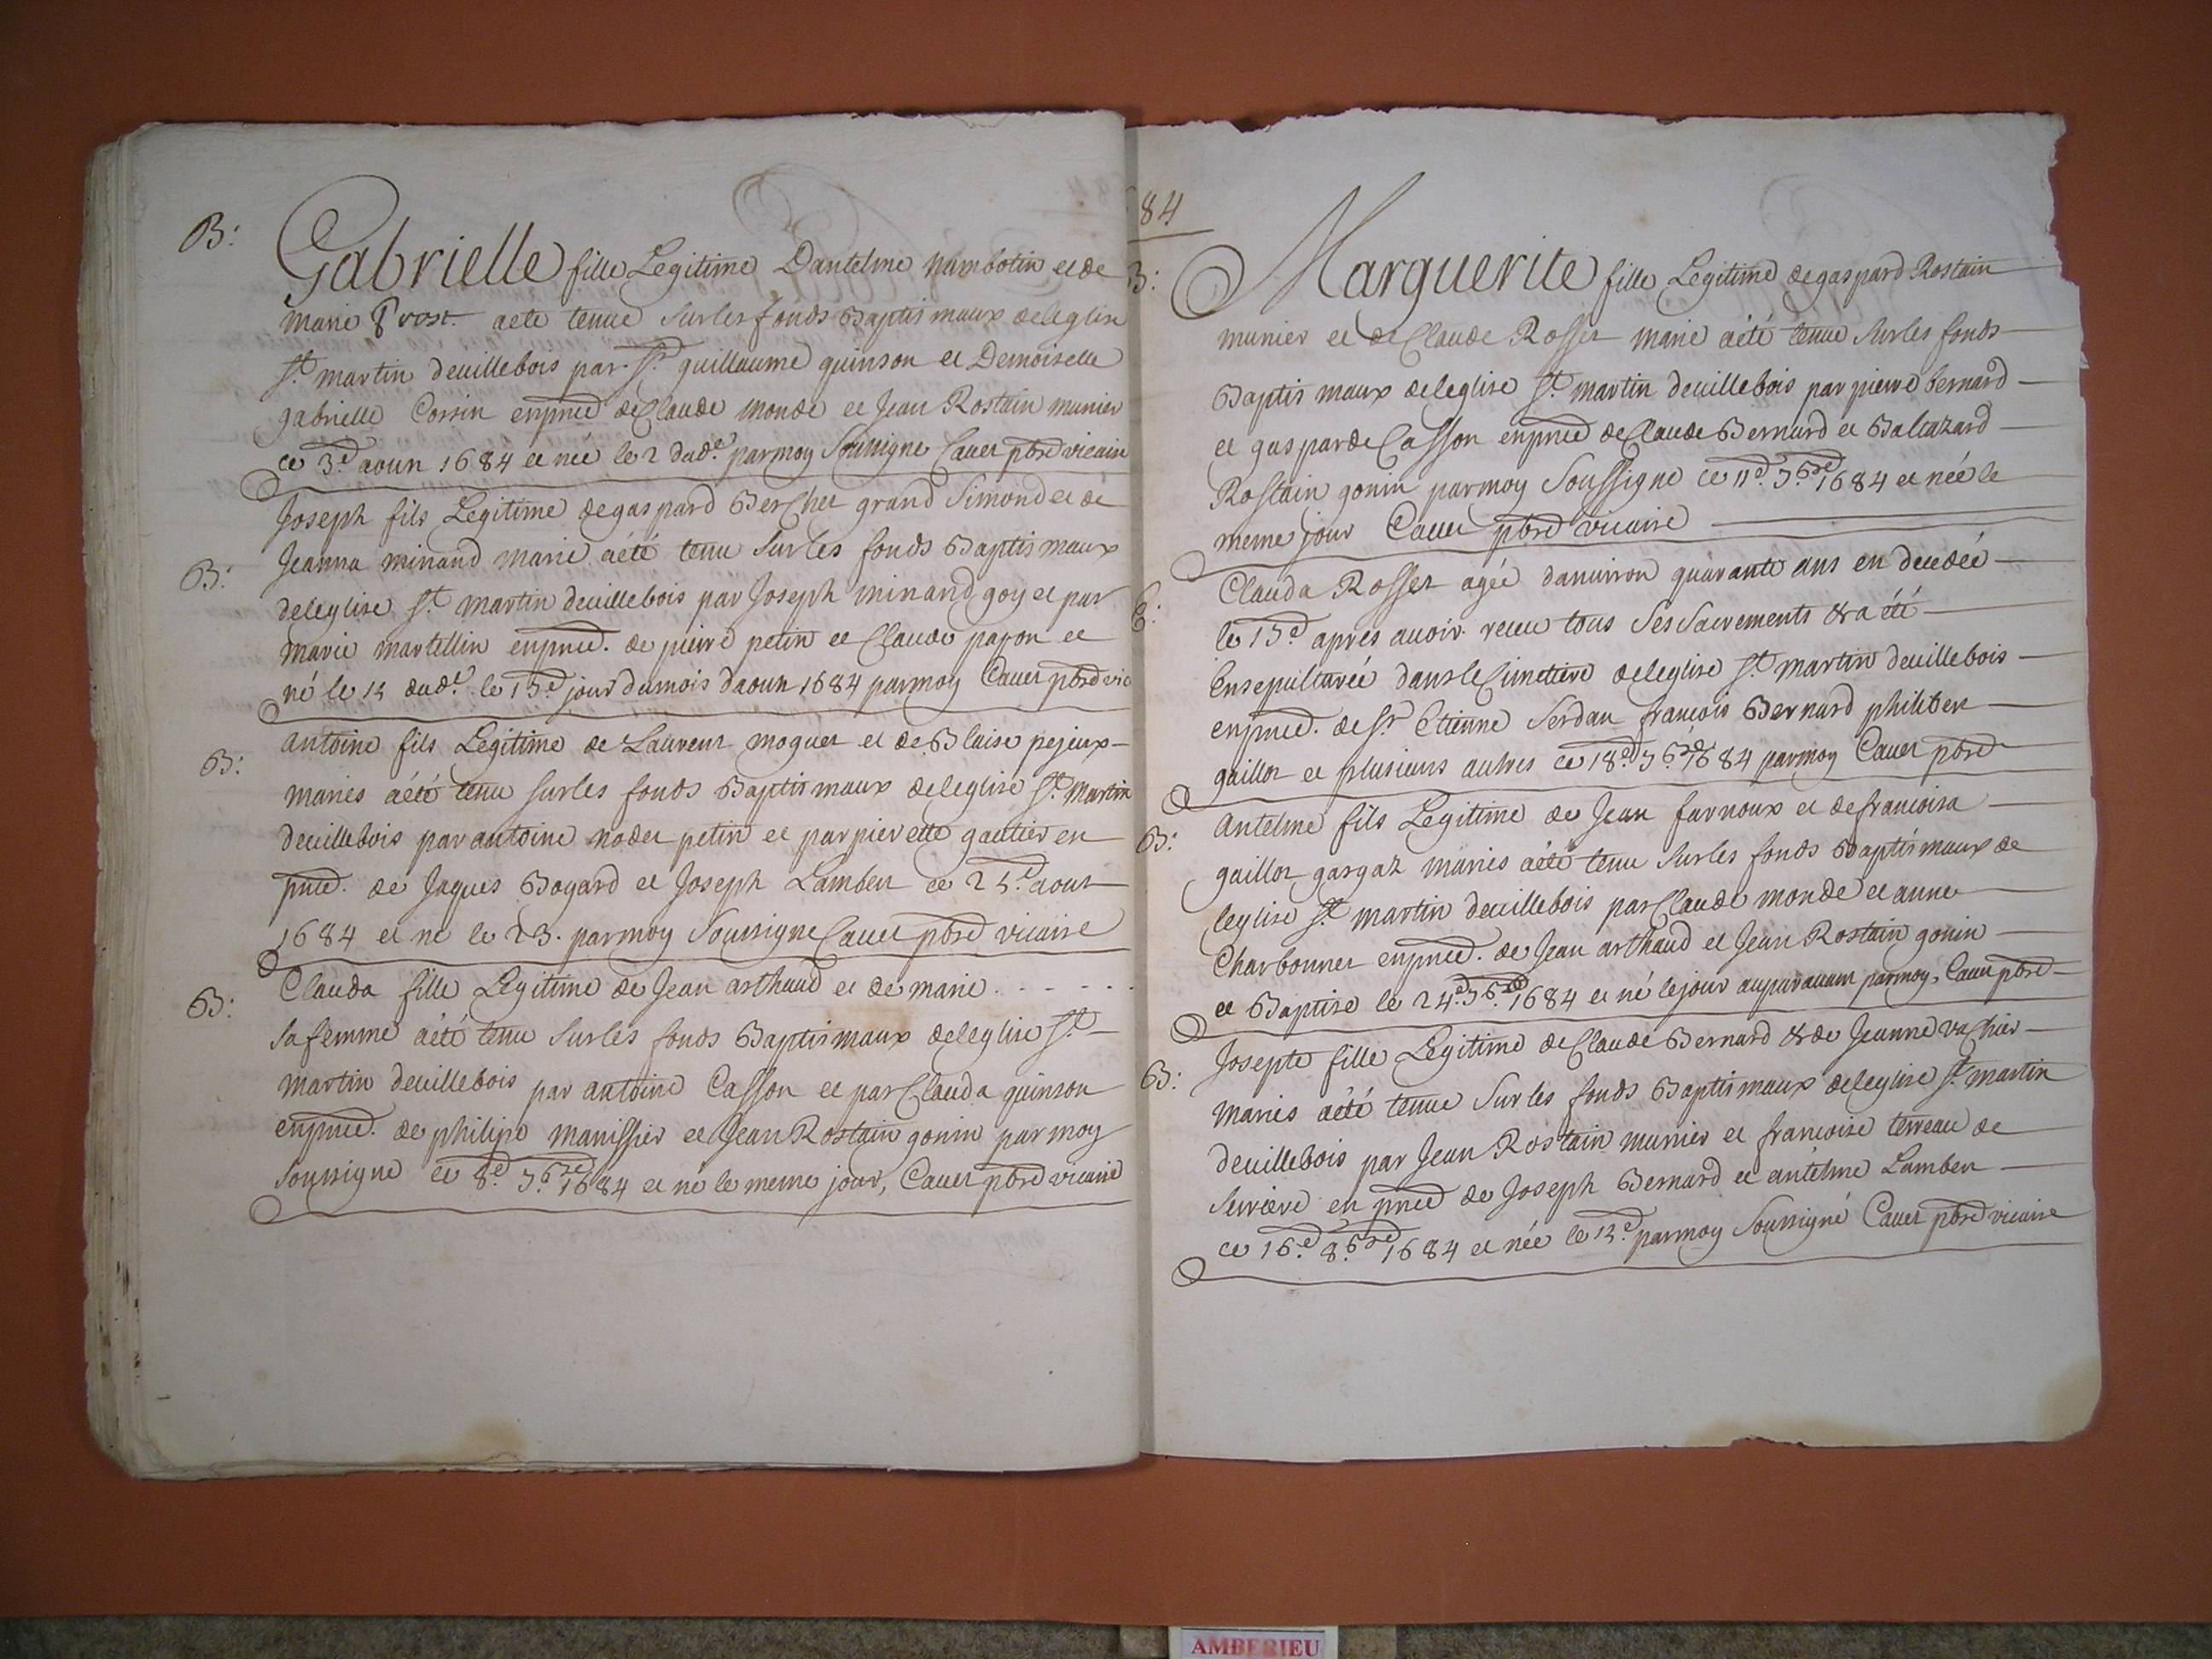 B:
Gabrielle fille Legitime Dantelme Nambotin et de
marie Prost aete tenue Surles fonds Baptismaux deleglise
St. martin deuillebois par Sr. guillaume quinson et Demoiselle
gabrielle Corsin enpnce de Claude monde et Jean Rostain munier
ce 3e aoun 1684 et née le 2 dude. parmoy Soussigne Cauet pbre vicaire
B:
Joseph fils Legitime degaspard Berchet grand Simond et de
Jeanna minand marie aété tenu Surles fonds Baptismaux
deleglise St. martin deuillebois par Joseph minand goy et par
marie martellin enpnce. de pierre petin et Claude papon et
né le dude. le 15e jour dumois daoun 1684 parmoy Cauet pbre vic
B:
Antoine fils Legitime de Laurent moguet et de Blaise pejeux
maries aété tenu surles fonds Baptismaux deleglise St. Martin
deuillebois par antoine nodet petin et par pierette gautier en
pnce. de Jaques Bogard et Joseph Lambert ce 25e aout
1684 et né le 23. parmoy Soussigne Cauet pbre vicaire
B:
Clauda fille Legitime de Jean arthaud et de marie . - - - .
Safemme aété tenu Surles fonds Baptismaux deleglise St.
martin deuillebois par antoine Casson et par Clauda quinson
enpnce. de philipe manissier et Jean Rostain gonin parmoy
Soussigne ce 8e 7bre 1684 et né le meme jour, Cauet pbre vicaire
84
B:
Marguerite fille Legitime degaspard Rostain
munier et de Claude Rosset marie aété tenue Surles fonds
Baptismaux deleglise St. martin deuillebois par pierre bernard
et gasparde Casson enpnce de Claude Bernard et Baltazard
Rostain gonin parmoy Soussigne ce 11e 7bre 1684 et née le
meme jour Cauet pbre vicaire
E:
Clauda Rosset agée danuiron quarante ans en decedée
le 15e apres auoir receu tous Ses Sacrements & a été
Ensepulturée dans le Cimetiere deleglise St. martin deuillebois
enpnce. de Sr. Etienne Serdan francois Bernard philiben
gaillot et plusieurs autres ce 18e 7bre 1684 parmoy Cauet pbre
B:
Antelme fils Legitime de Jean farnoux et defrancoisa
gaillot gargaz maries aété tenu Surles fonds Baptismaux de
leglise St. martin deuillebois par Claude monde et anne
Charbonnet enpnce. de Jean arthaud et Jean Rostain gonin
et Baptise le 24e 7bre 1684 et né lejour auparauant parmoy. Cauet pbre
B:
Josepte fille Legitime de Claude Bernard & de Jeanne vachier
maries aété tenue Surles fonds Baptismaux deleglise St. martin
deuillebois par Jean Rostain munier et francoise terreau de
Serriere en pnce de Joseph Bernard et antelme Lambert
ce 16e 8bre 1684 et née le parmoy Soussigné Cauet pbre vicaire
AMBERIEU